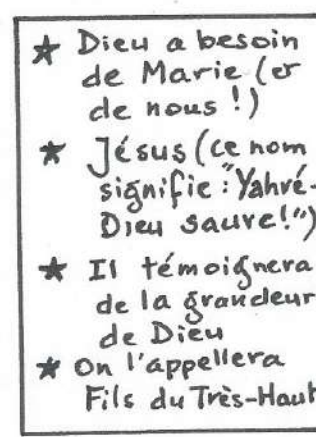 ★ Dieu a besoin
de Marie (et
de nous !)
★ Jésus (ce nom
signifie : "Yahvé-
Dieu sauve!")
★ Il témoignera
de la grandeur
de Dieu
★ On l'appellera
Fils du Très-Haut